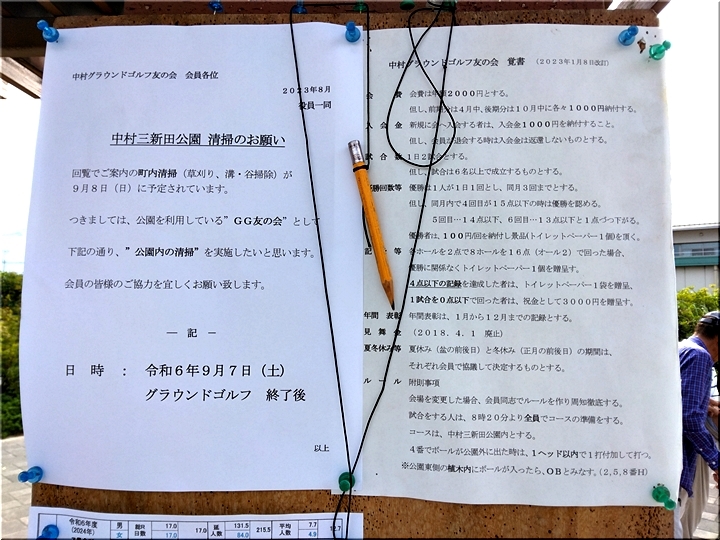 中村グラウンドゴルフ友の会　会員各位
2023年8月
役員一同
中村三新田公園 清掃のお願い
回覧でご案内の町内清掃（草刈り、溝・谷掃除）が
9月8日（日）に予定されています。
つきましては、公園を利用している"GG友の会"として
下記の通り、"公園内の清掃"を実施したいと思います。
会員の皆様のご協力を宜しくお願い致します。
― 記 ―
日　時　：　令和6年9月7日（土）
グラウンドゴルフ　終了後
以上
中村グラウンドゴルフ友の会　覚書　（2023年1月8日改訂）
会　費　会費は年額2000円とする。
但し、前期分は4月中、後期分は10月中に各々1000円納付する。
入 会 金　新規に会へ入会する者は、入会金1000円を納付すること。
但し、会員が退会する時は入会金は返還しないものとする。
試 合 数　1日2試合とする。
但し、試合は6名以上で成立するものとする。
優勝回数等　優勝は1人が1日1回とし、同月3回までとする。
但し、同月内で4回目が15点以下の時は優勝を認める。
5回目…14点以下、6回目…13点以下と1点づつ下がる。
優勝者は、100円/回を納付し景品（トイレットペーパー1個）を頂く。
記 等　各ホールを2点で8ホールを16点（オール2）で回った場合、
優勝に関係なくトイレットペーパー1個を贈呈。
4点以下の記録を達成した者は、トイレットペーパー1袋を贈呈、
1試合を0点以下で回った者は、祝金として3000円を贈呈。
年間 表彰　年間表彰は、1月から12月までの記録とする。
見 舞 金　（2018．4．1　廃止）
夏冬休み等　夏休み（盆の前後日）と冬休み（正月の前後日）の期間は、
それぞれ会員で協議して決定するものとする。
ル ー ル　附則事項
会場を変更した場合、会員同志でルールを作り周知徹底する。
試合をする人は、8時20分より全員でコースの準備をする。
コースは、中村三新田公園内とする。
4番でボールが公園外に出た時は、1ヘッド以内で1打付加して打つ。
※公園東側の植木内にボールが入ったら、OBとみなす。（2,5,8番H）
令和6年度　男　総R　17.0　17.0　延　131.5　215.5　平均　7.7　12.7
（2024年）　女　日数　17.0　人数　84.0　人数　4.9